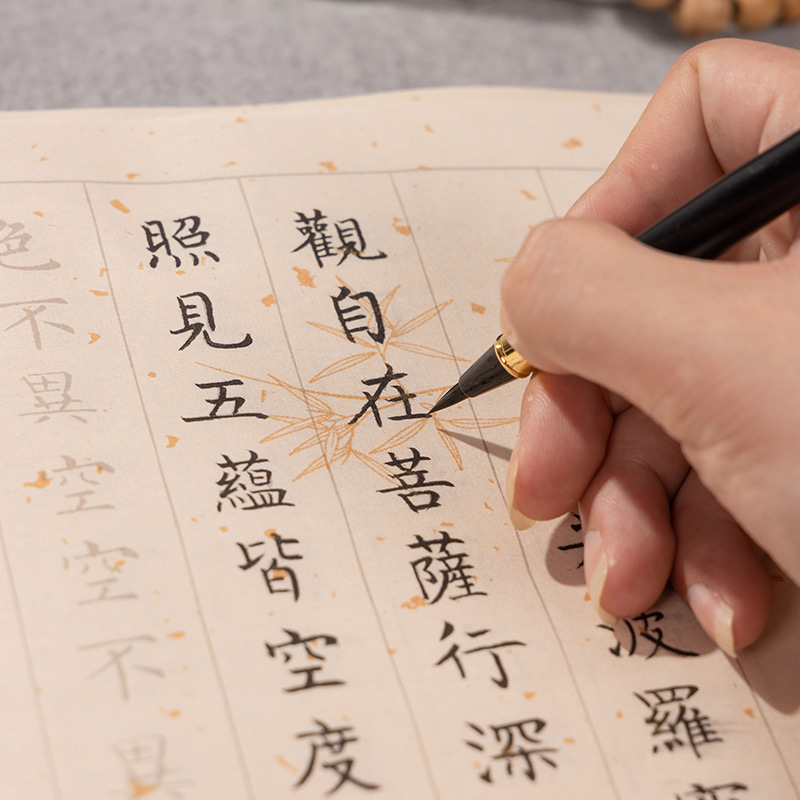 波羅
觀自在菩薩行深
照見五蘊皆空度
色不異空空不異